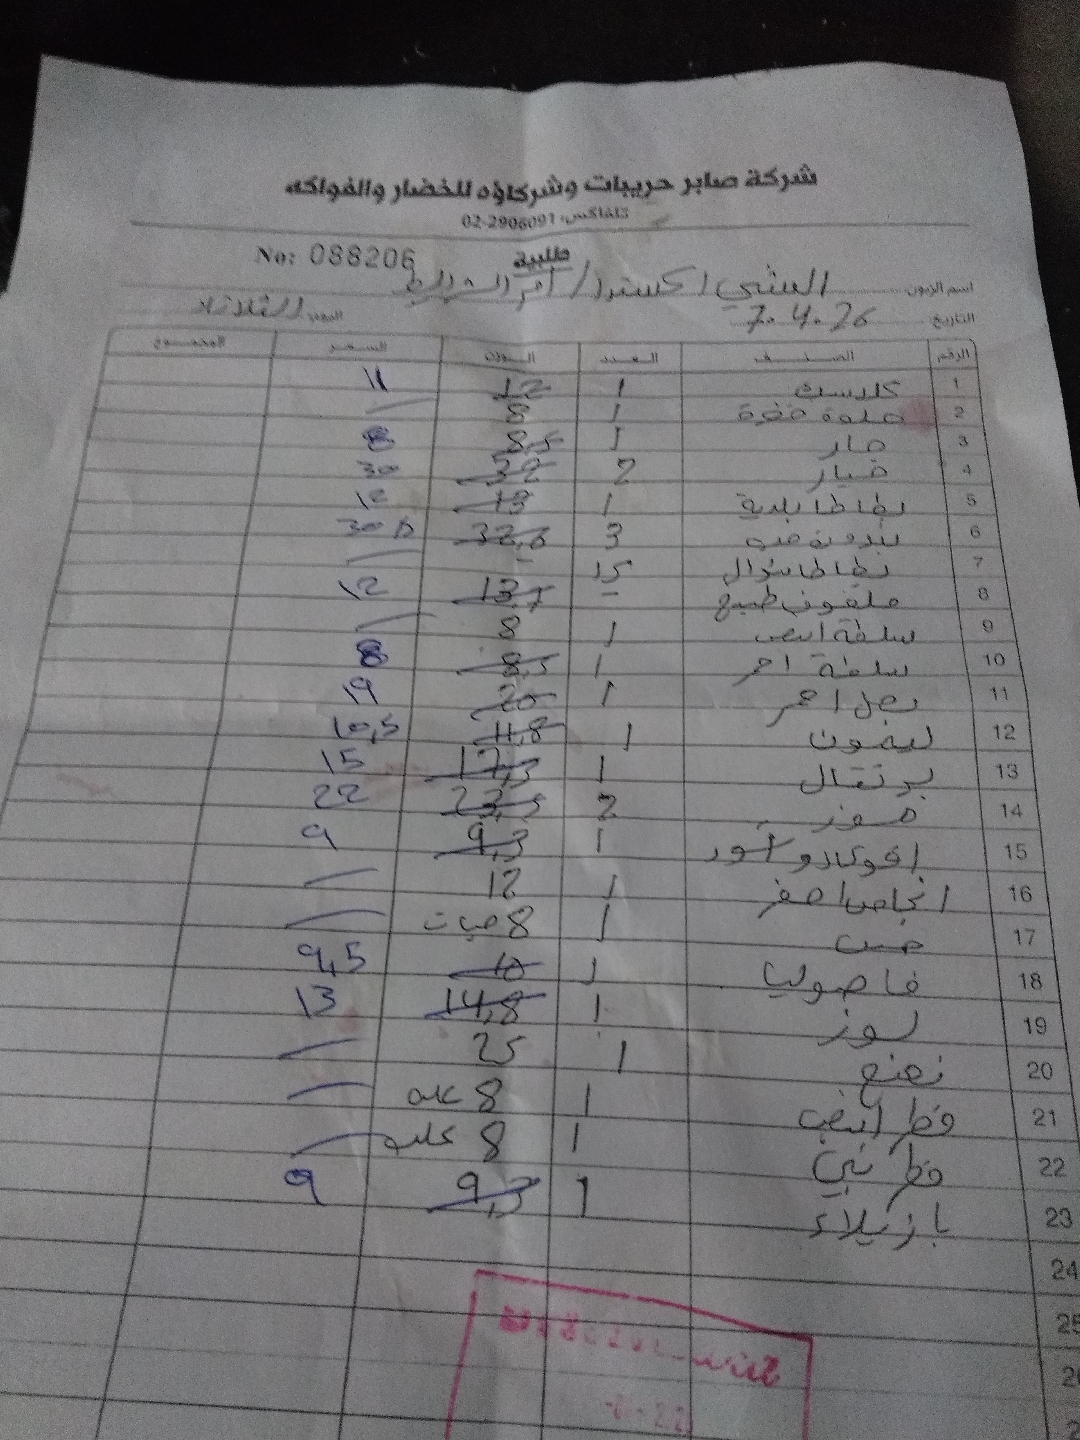 شركة صابر حريبات وشركاؤه للخضار والفواكه
تلفاكس: 02-2906091
طلبية
No: 088206
اسم الزبون: الشني اكسترا / ام الشرايط
التاريخ: 7.4.26 اليوم: الثلاثاء
الرقم الصنف العدد الوزن السعر المجموع
1 كلاسيك 1 12 11
2 حلوة خضرة 1 8
3 حار 1 8,5 8
4 خيار 2 32 30
5 بطاطا بلدية 1 13 12
6 بندورة 3 32,6 30
7 بطاطا شوال 15 -
8 ملفوف طبيخ - 13,7 12
9 سلطة ابيض 1 8
10 سلطة احمر 1 8,5 8
11 بصل احمر 1 20 19
12 ليمون 1 11,8 10,5
13 برتقال 1 17,3 15
14 موز 2 23,5 22
15 افوكادو 1 9,3 9
16 انجاص اصفر 1 12
17 خس 1 8 حبات
18 فاصوليا 1 10 9,5
19 لوز 1 14,8 13
20 نعنع 1 25
21 فطر ابيض 1 8 علبه
22 فطر بني 1 8 علبه
23 بازيلاء 1 9,3 9
24
25